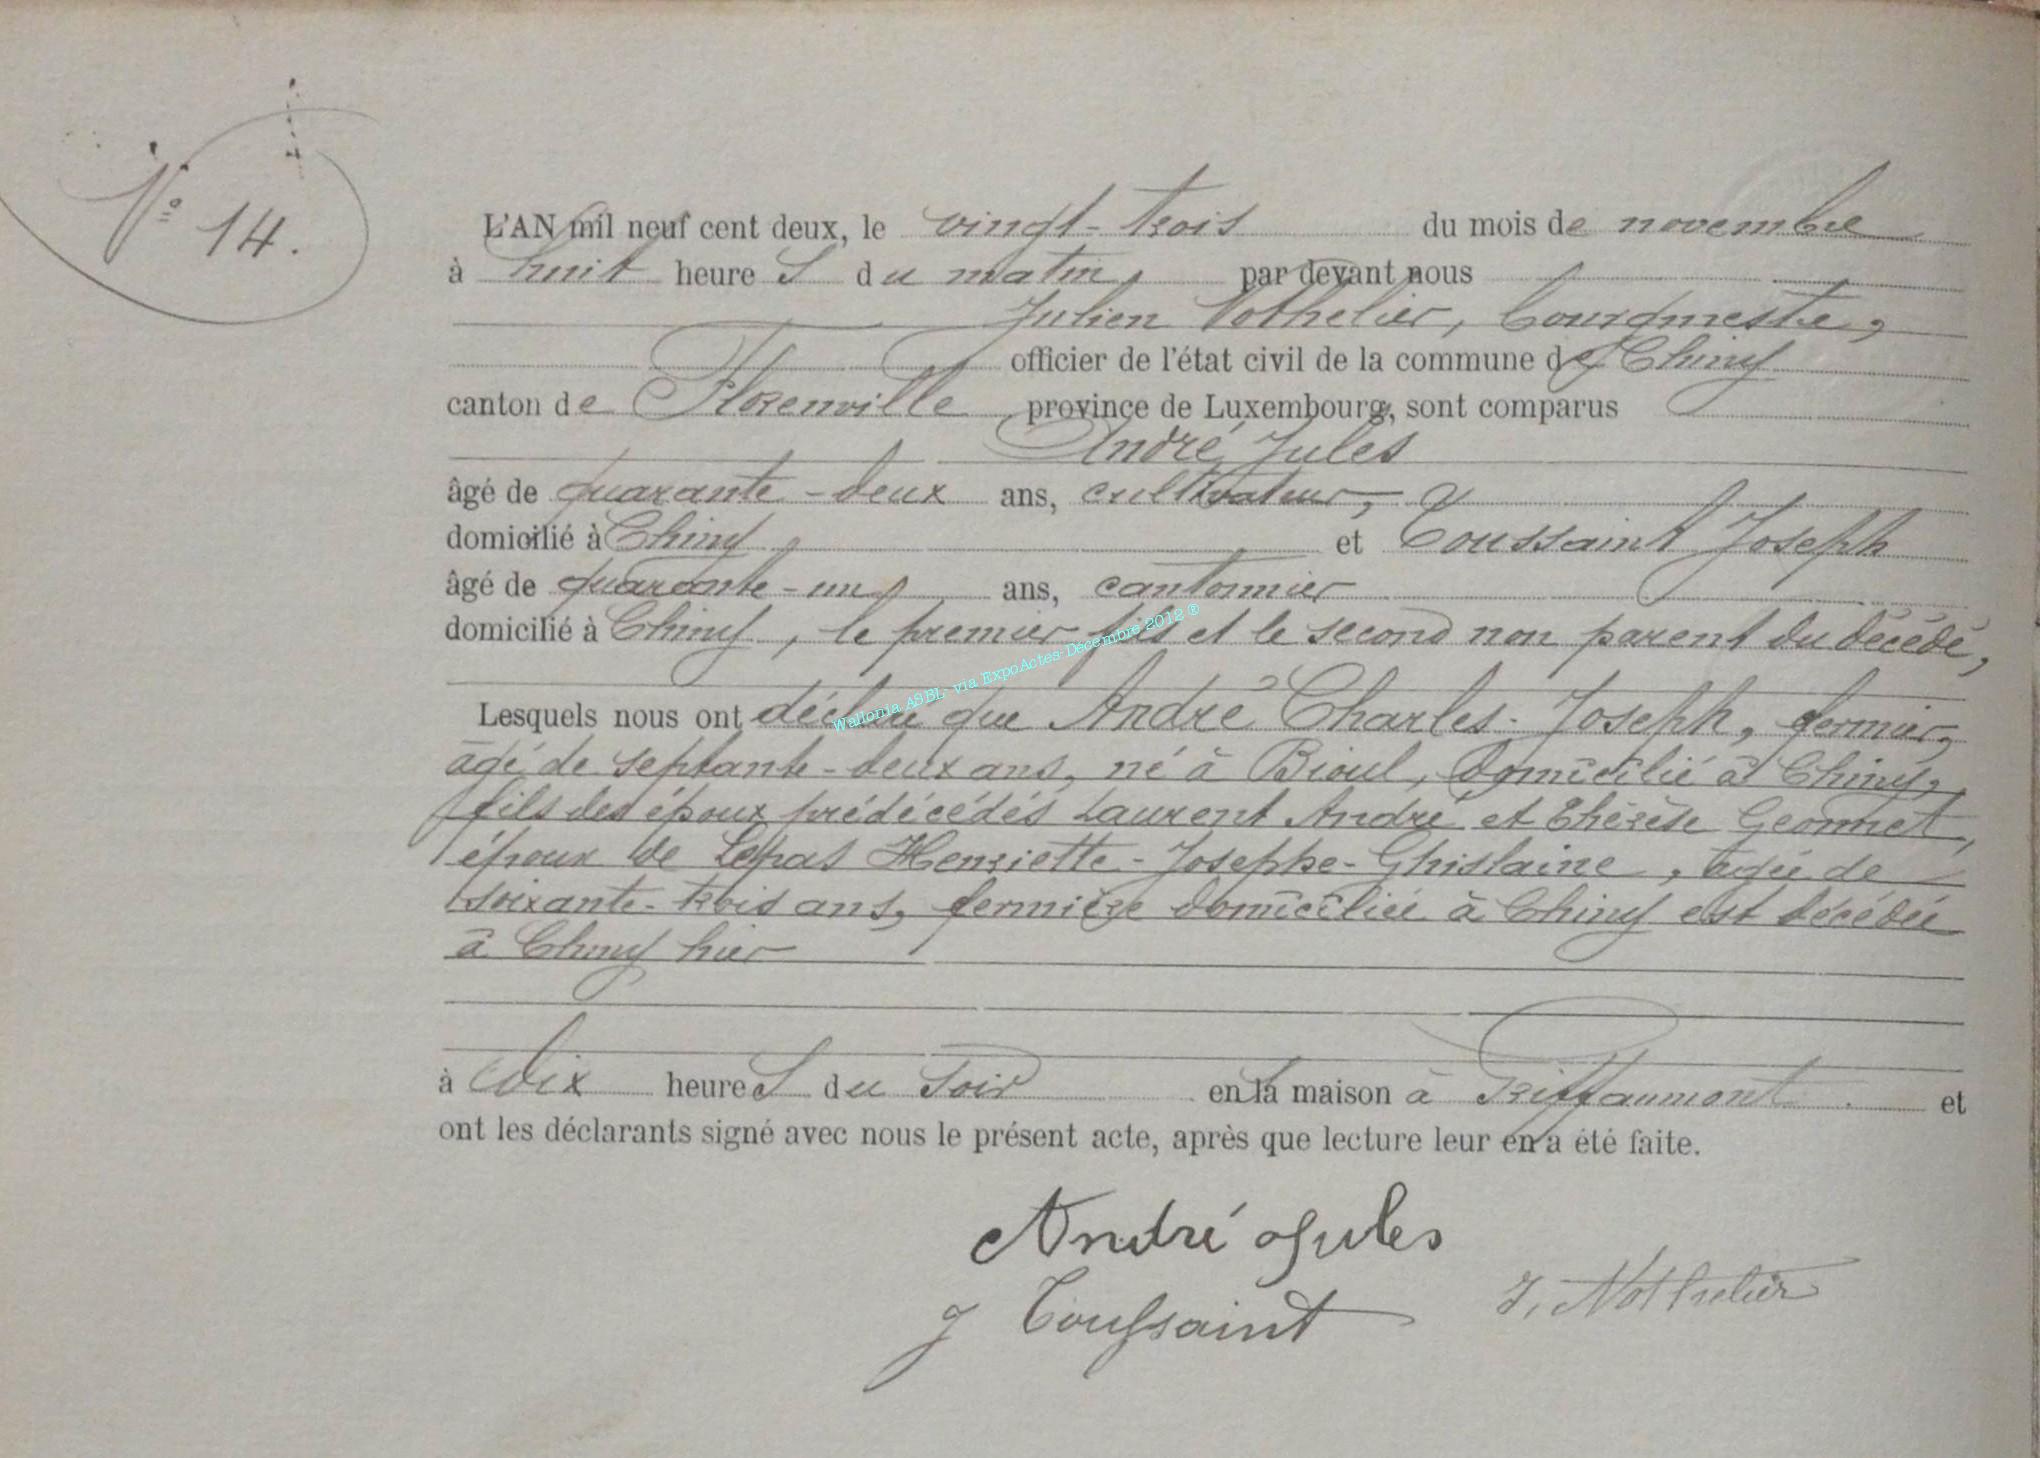 N° 14.
L'AN mil neuf cent deux, le vingt-trois du mois de novembre
à huit heures du matin, par devant nous
Julien Nothelier, Bourgmestre,
officier de l'état civil de la commune de Chiny
canton de Florenville province de Luxembourg, sont comparus
André Jules
âgé de quarante-deux ans, cultivateur,
domicilié à Chiny et Toussaint Joseph
âgé de quarante-un ans, cantonnier
domicilié à Chiny, le premier fils et le second non parent du décédé,
Lesquels nous ont déclaré que André Charles-Joseph, fermier,
âgé de septante-deux ans, né à Bioul, domicilié à Chiny,
fils des époux prédécédés Laurent André et Thérèse Geonnet,
époux de Lepas Henriette-Josephe-Ghislaine, âgée de
soixante-trois ans, fermière domiciliée à Chiny est décédée
à Chiny hier
à dix heures du soir en sa maison à Priffaumont et
ont les déclarants signé avec nous le présent acte, après que lecture leur en a été faite.
André Jules
J Toussaint
J. Nothelier
Wallonia ASBL- via ExpoActes-Décembre 2012 ®